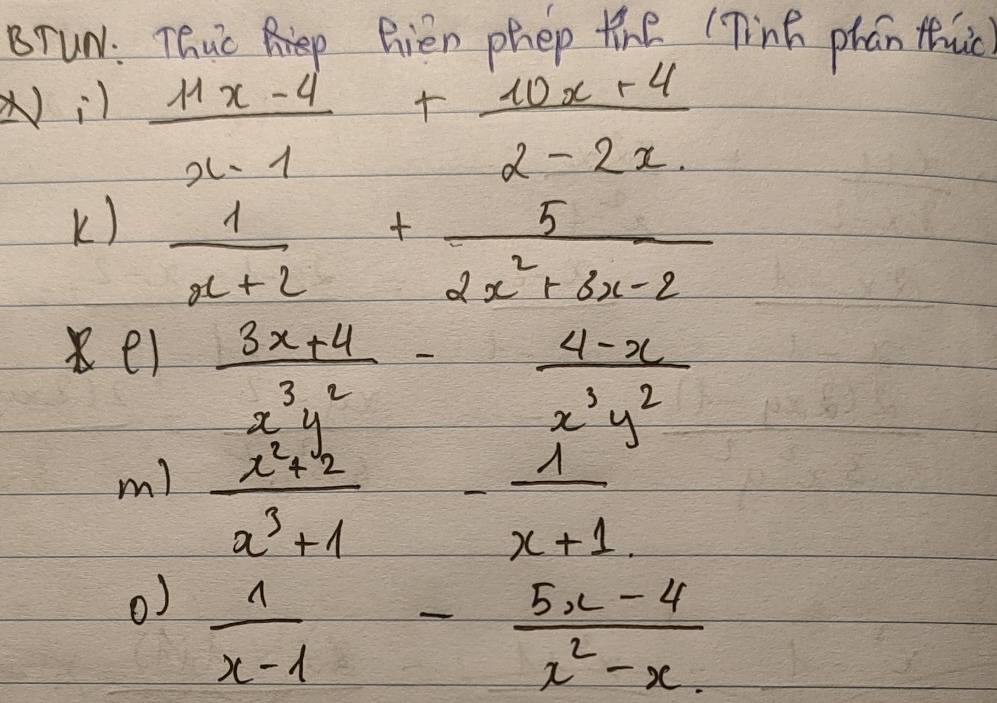 BTVN: Thực hiẹp hiện phép tính (Tính phân thức)
i) (11x - 4)/(x - 1) + (10x + 4)/(2 - 2x).
k) 1/(x + 2) + 5/(2x² + 3x - 2)
l) (3x + 4)/(x³y²) - (4 - x)/(x³y²)
m) (x² + 2)/(x³ + 1) - 1/(x + 1).
o) 1/(x - 1) - (5x - 4)/(x² - x).